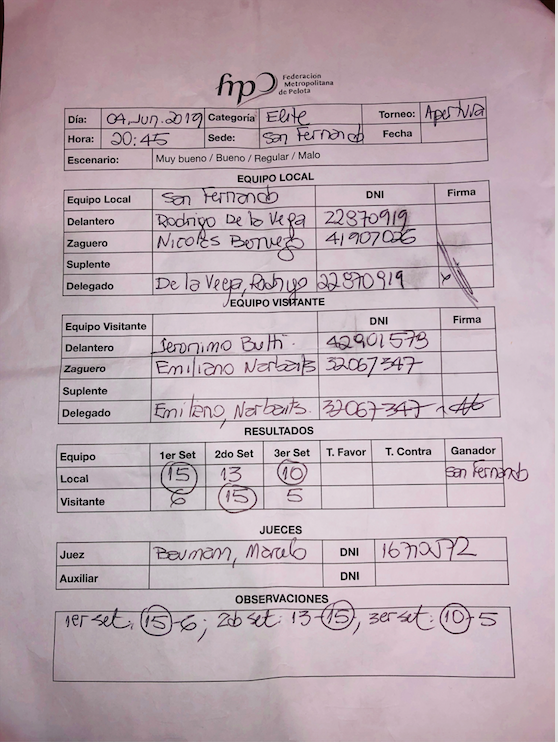 fmp Federacion
Metropolitana
de Pelota
Día: 04, Jun. 2019 Categoría Elite Torneo: Apertura
Hora: 20:45 Sede: San Fernando Fecha
Escenario: Muy bueno / Bueno / Regular / Malo
EQUIPO LOCAL
Equipo Local San Fernando DNI Firma
Delantero Rodrigo De la Vega 22870919
Zaguero Nicolás 41907026
Suplente
Delegado De la Vega, Rodrigo 22870919
EQUIPO VISITANTE
Equipo Visitante DNI Firma
Delantero Jeronimo Butti. 42901573
Zaguero Emiliano Narbaits 32067347
Suplente
Delegado Emiliano, Narbaits. 32067347
RESULTADOS
Equipo 1er Set 2do Set 3er Set T. Favor T. Contra Ganador
Local 15 13 10 San Fernando
Visitante 6 15 5
JUECES
Juez Bauman, Marcelo DNI
Auxíliar DNI
OBSERVACIONES
1er set: 15-6; 2do set: 13-15, 3er set: 10-5